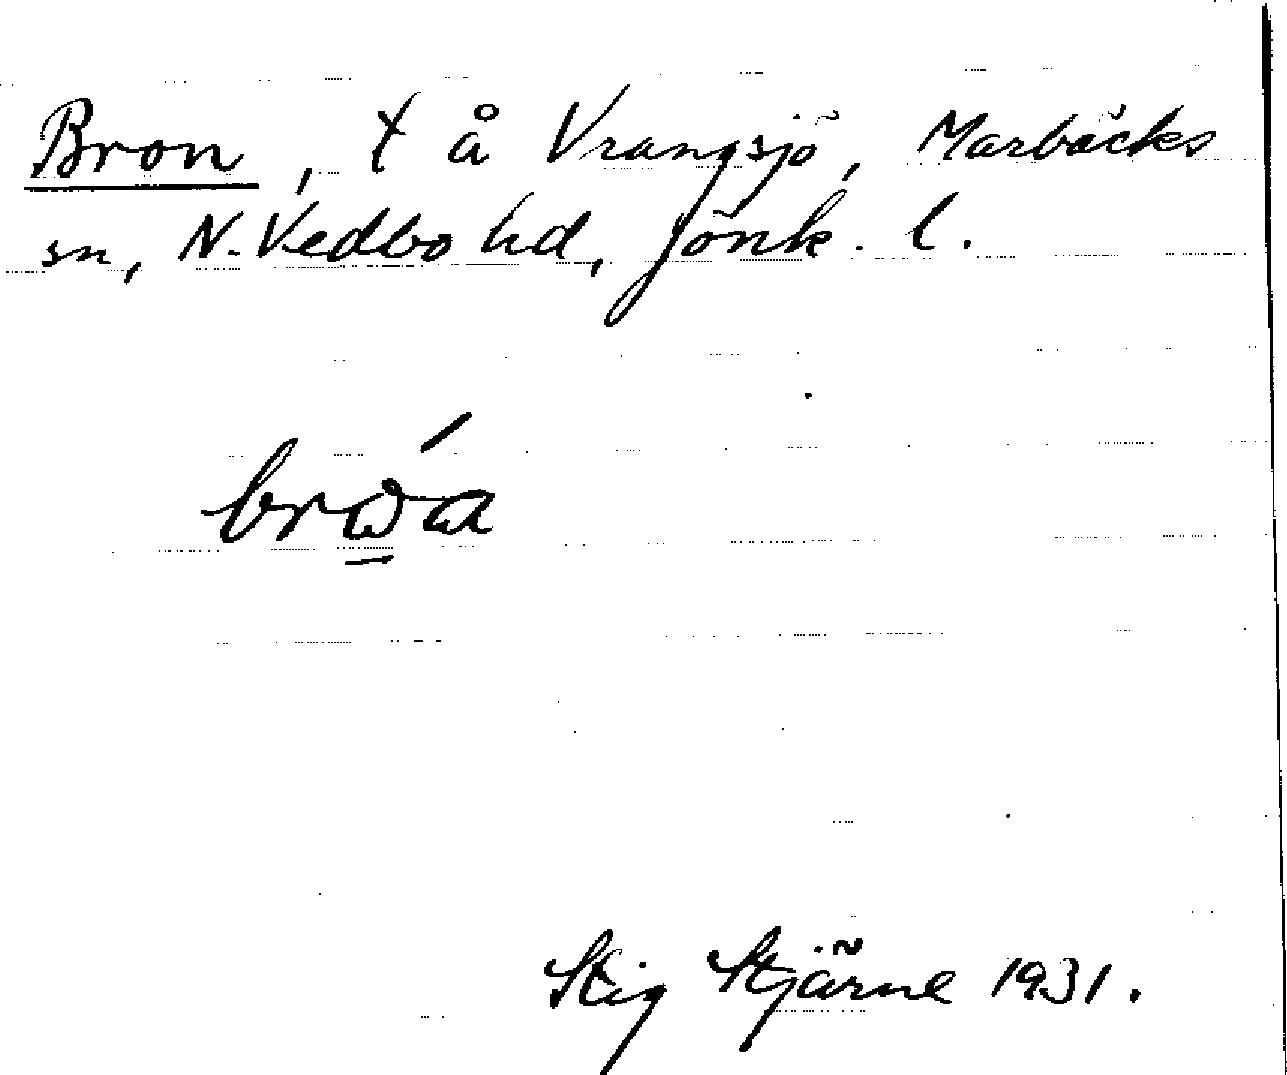 Bron, t å Vrangsjö, Marbäcks
sn, N. Vedbo hd, Jönk. l.
Stig Stjärne 1931.